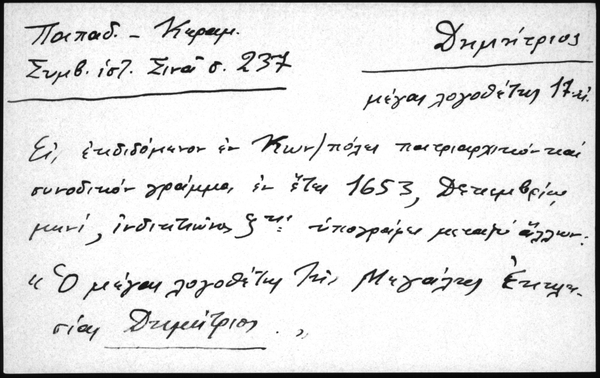 Παπαδ. - Κεραμ.
Συμβ. ἱστ. Σινᾶ σ. 237
Δημήτριος
μέγας λογοθέτης 17 αἰ.
Εἰς ἐκδιδόμενον ἐν Κων/πόλει πατριαρχικὸν καὶ
συνοδικὸν γράμμα, ἐν ἔτει 1653, Δεκεμβρίῳ
μηνί, ἰνδικτιῶνος ζης ὑπογράφει μεταξὺ ἄλλων:
« Ὁ μέγας λογοθέτης τῆς Μεγάλης Ἐκκλη-
σίας Δημήτριος. »